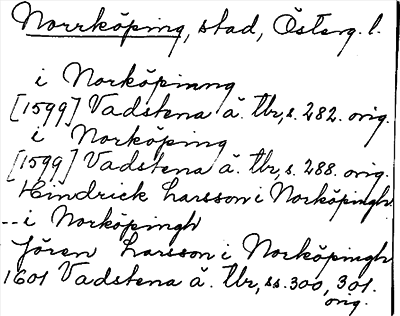 Norrköping, stad, Österg. l.
i Norköpinng
[1599] Vadstena ä. tbr, s. 282. orig.
i Norköping
[1599] Vadstena ä. tbr, s. 288. orig.
Hindrick Larsson i Norköpingh
-- i Norköpingh
Jören Larsson i Norköpingh
1601 Vadstena ä. tbr, ss. 300, 301.
orig.